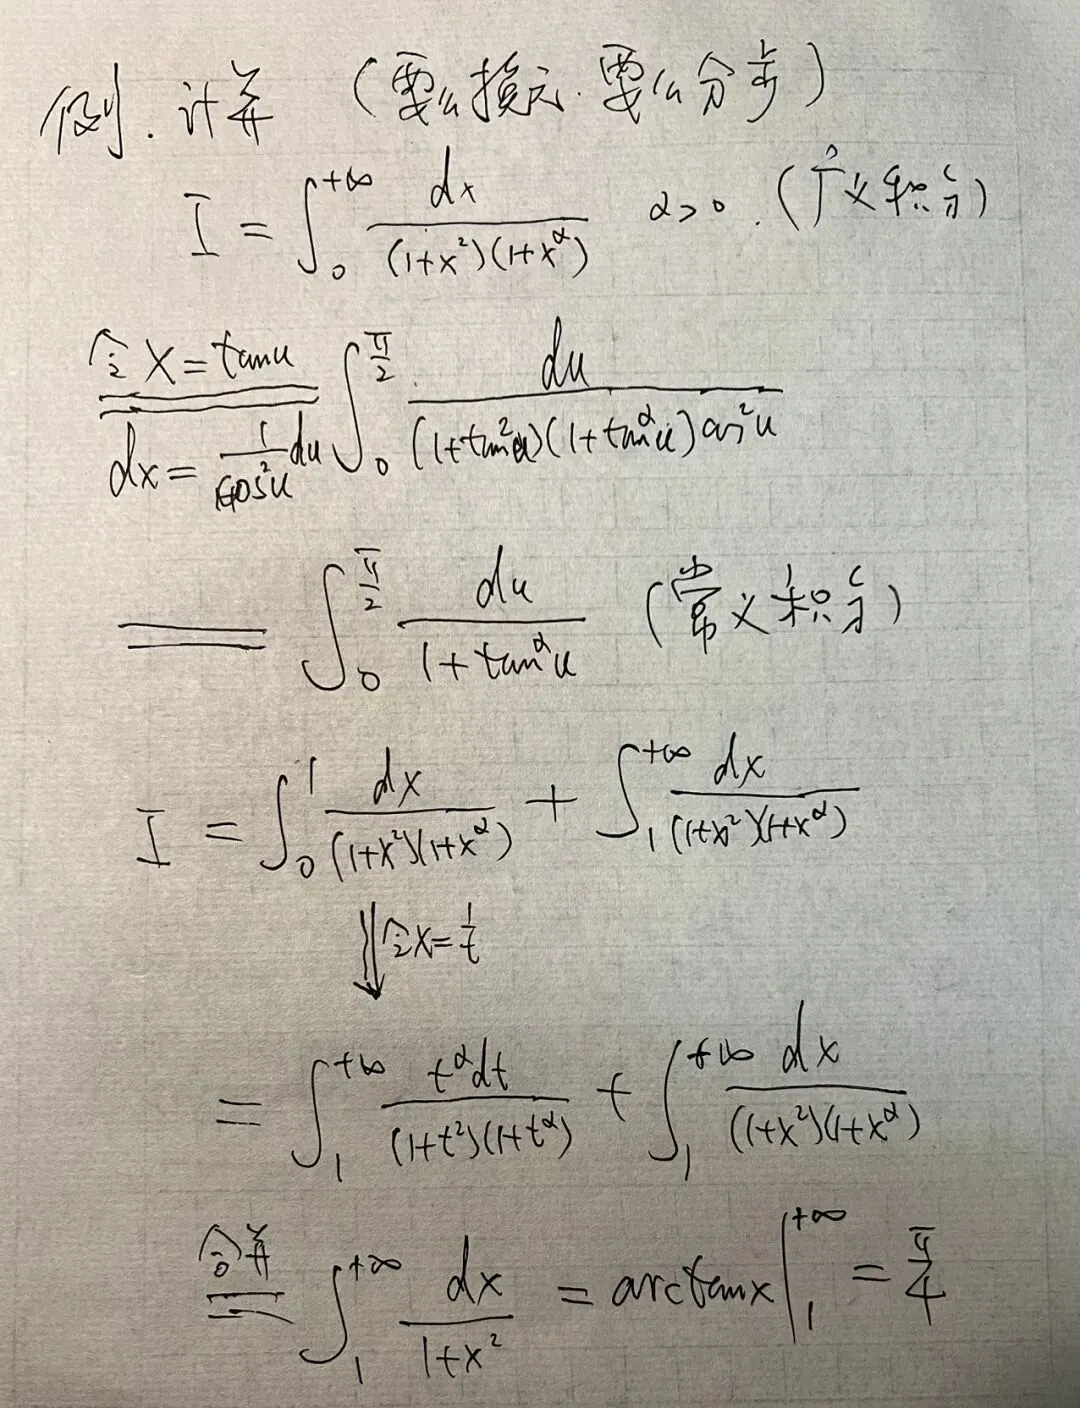 例.计算 (要么换元.要么分步)
I = ∫₀^{+∞} dx / ((1+x²)(1+x^α)) α>0. (广义积分)
令 x=tanu dx = 1/cos²u du ∫₀^{π/2} du / ((1+tan²u)(1+tan^α u)cos²u)
= ∫₀^{π/2} du / (1+tan^α u) (常义积分)
I = ∫₀^1 dx / ((1+x²)(1+x^α)) + ∫₁^{+∞} dx / ((1+x²)(1+x^α))
⇓ 令 x=1/t
= ∫₁^{+∞} t^α dt / ((1+t²)(1+t^α)) + ∫₁^{+∞} dx / ((1+x²)(1+x^α))
合并 = ∫₁^{+∞} dx / (1+x²) = arctanx |₁^{+∞} = π/4